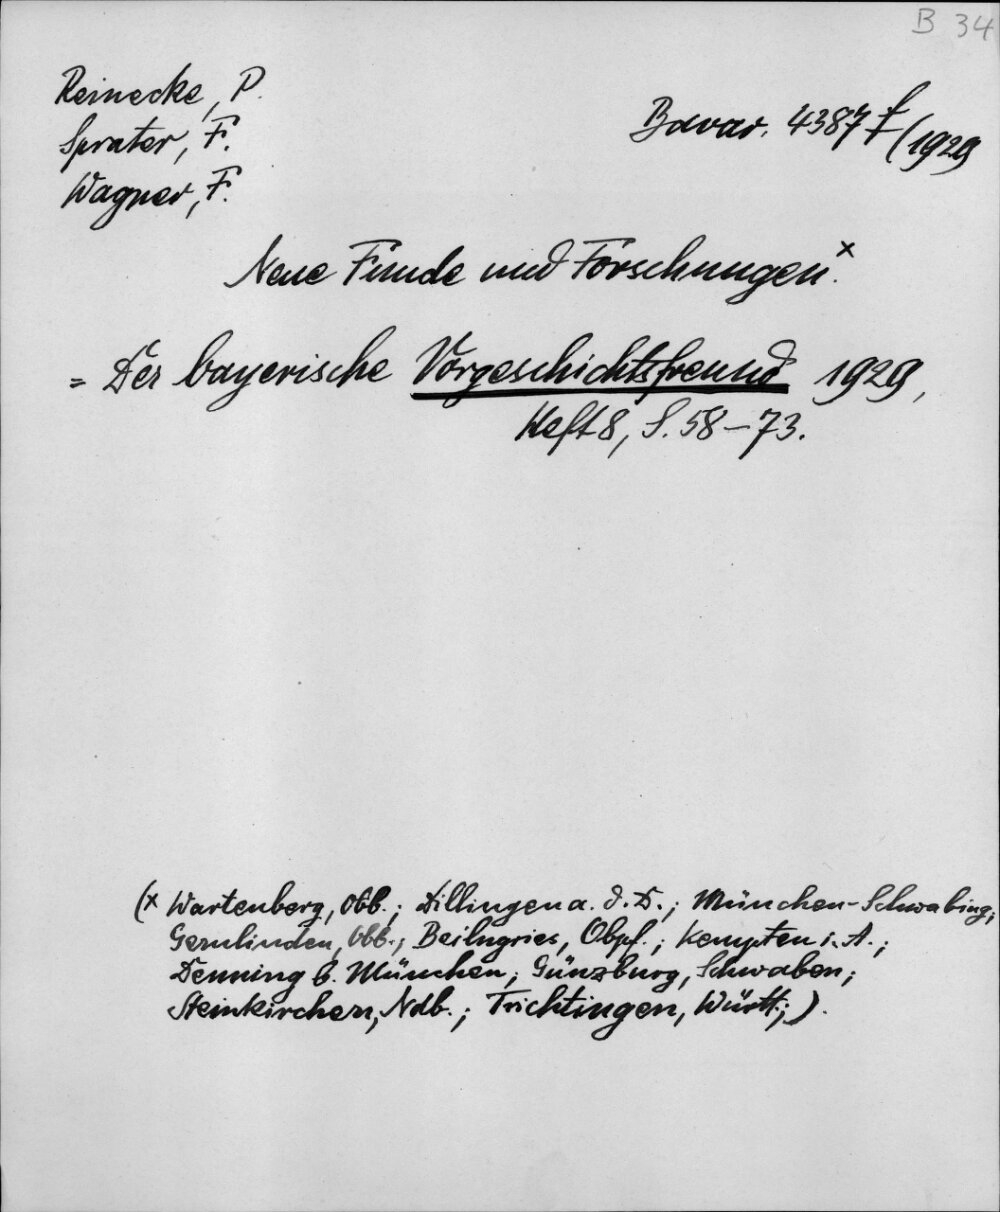 B 34
Reinecke, P.
Sprater, F.
Wagner, F.
Bavar. 4387 f (1929
Neue Funde und Forschungen.x
= Der bayerische Vorgeschichtsfreund 1929,
Heft 8, S. 58-73.
(x Wartenberg, Obb.; Dillingen a. d. D.; München-Schwabing;
Gernlinden, Obb.; Beilngries, Obpf.; Kempten i. A.;
Denning b. München; Günzburg, Schwaben;
Steinkirchen, Ndb.; Trichtingen, Württ.;).